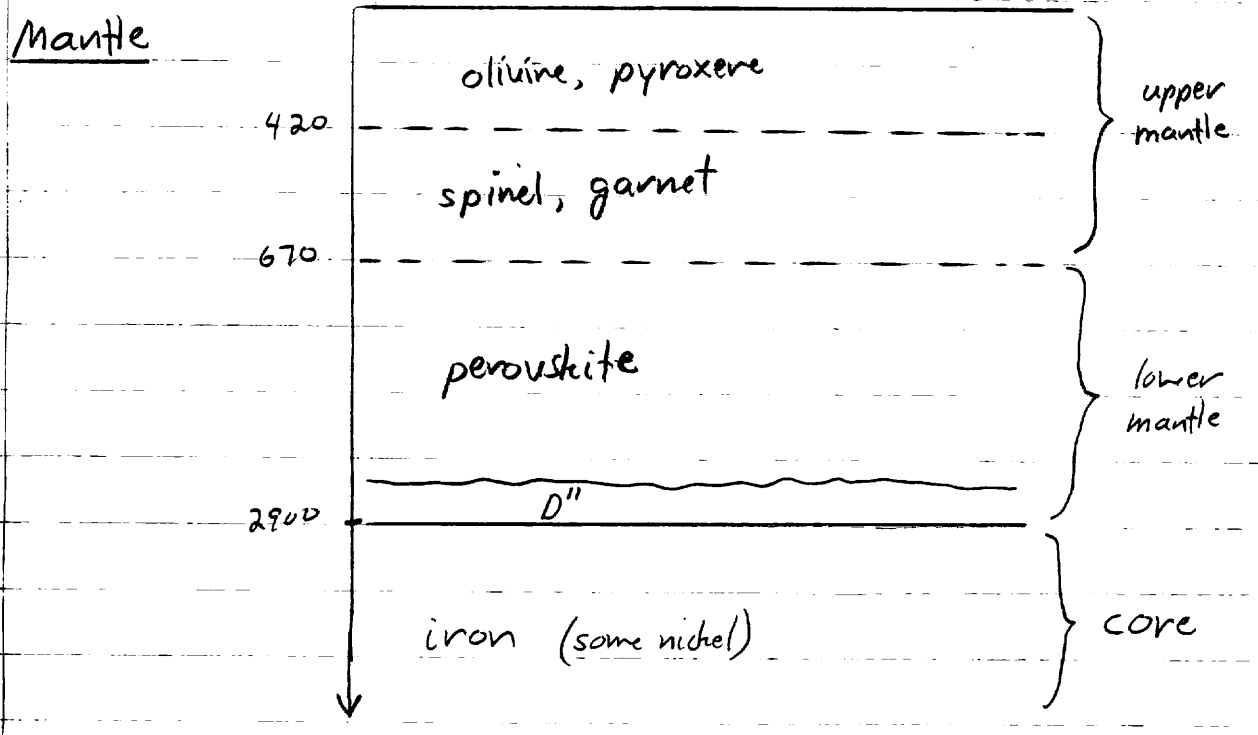 Mantle
olivine, pyroxene
upper
mantle
420
spinel, garnet
670
perovskite
lower
mantle
D"
2900
iron (some nickel)
core